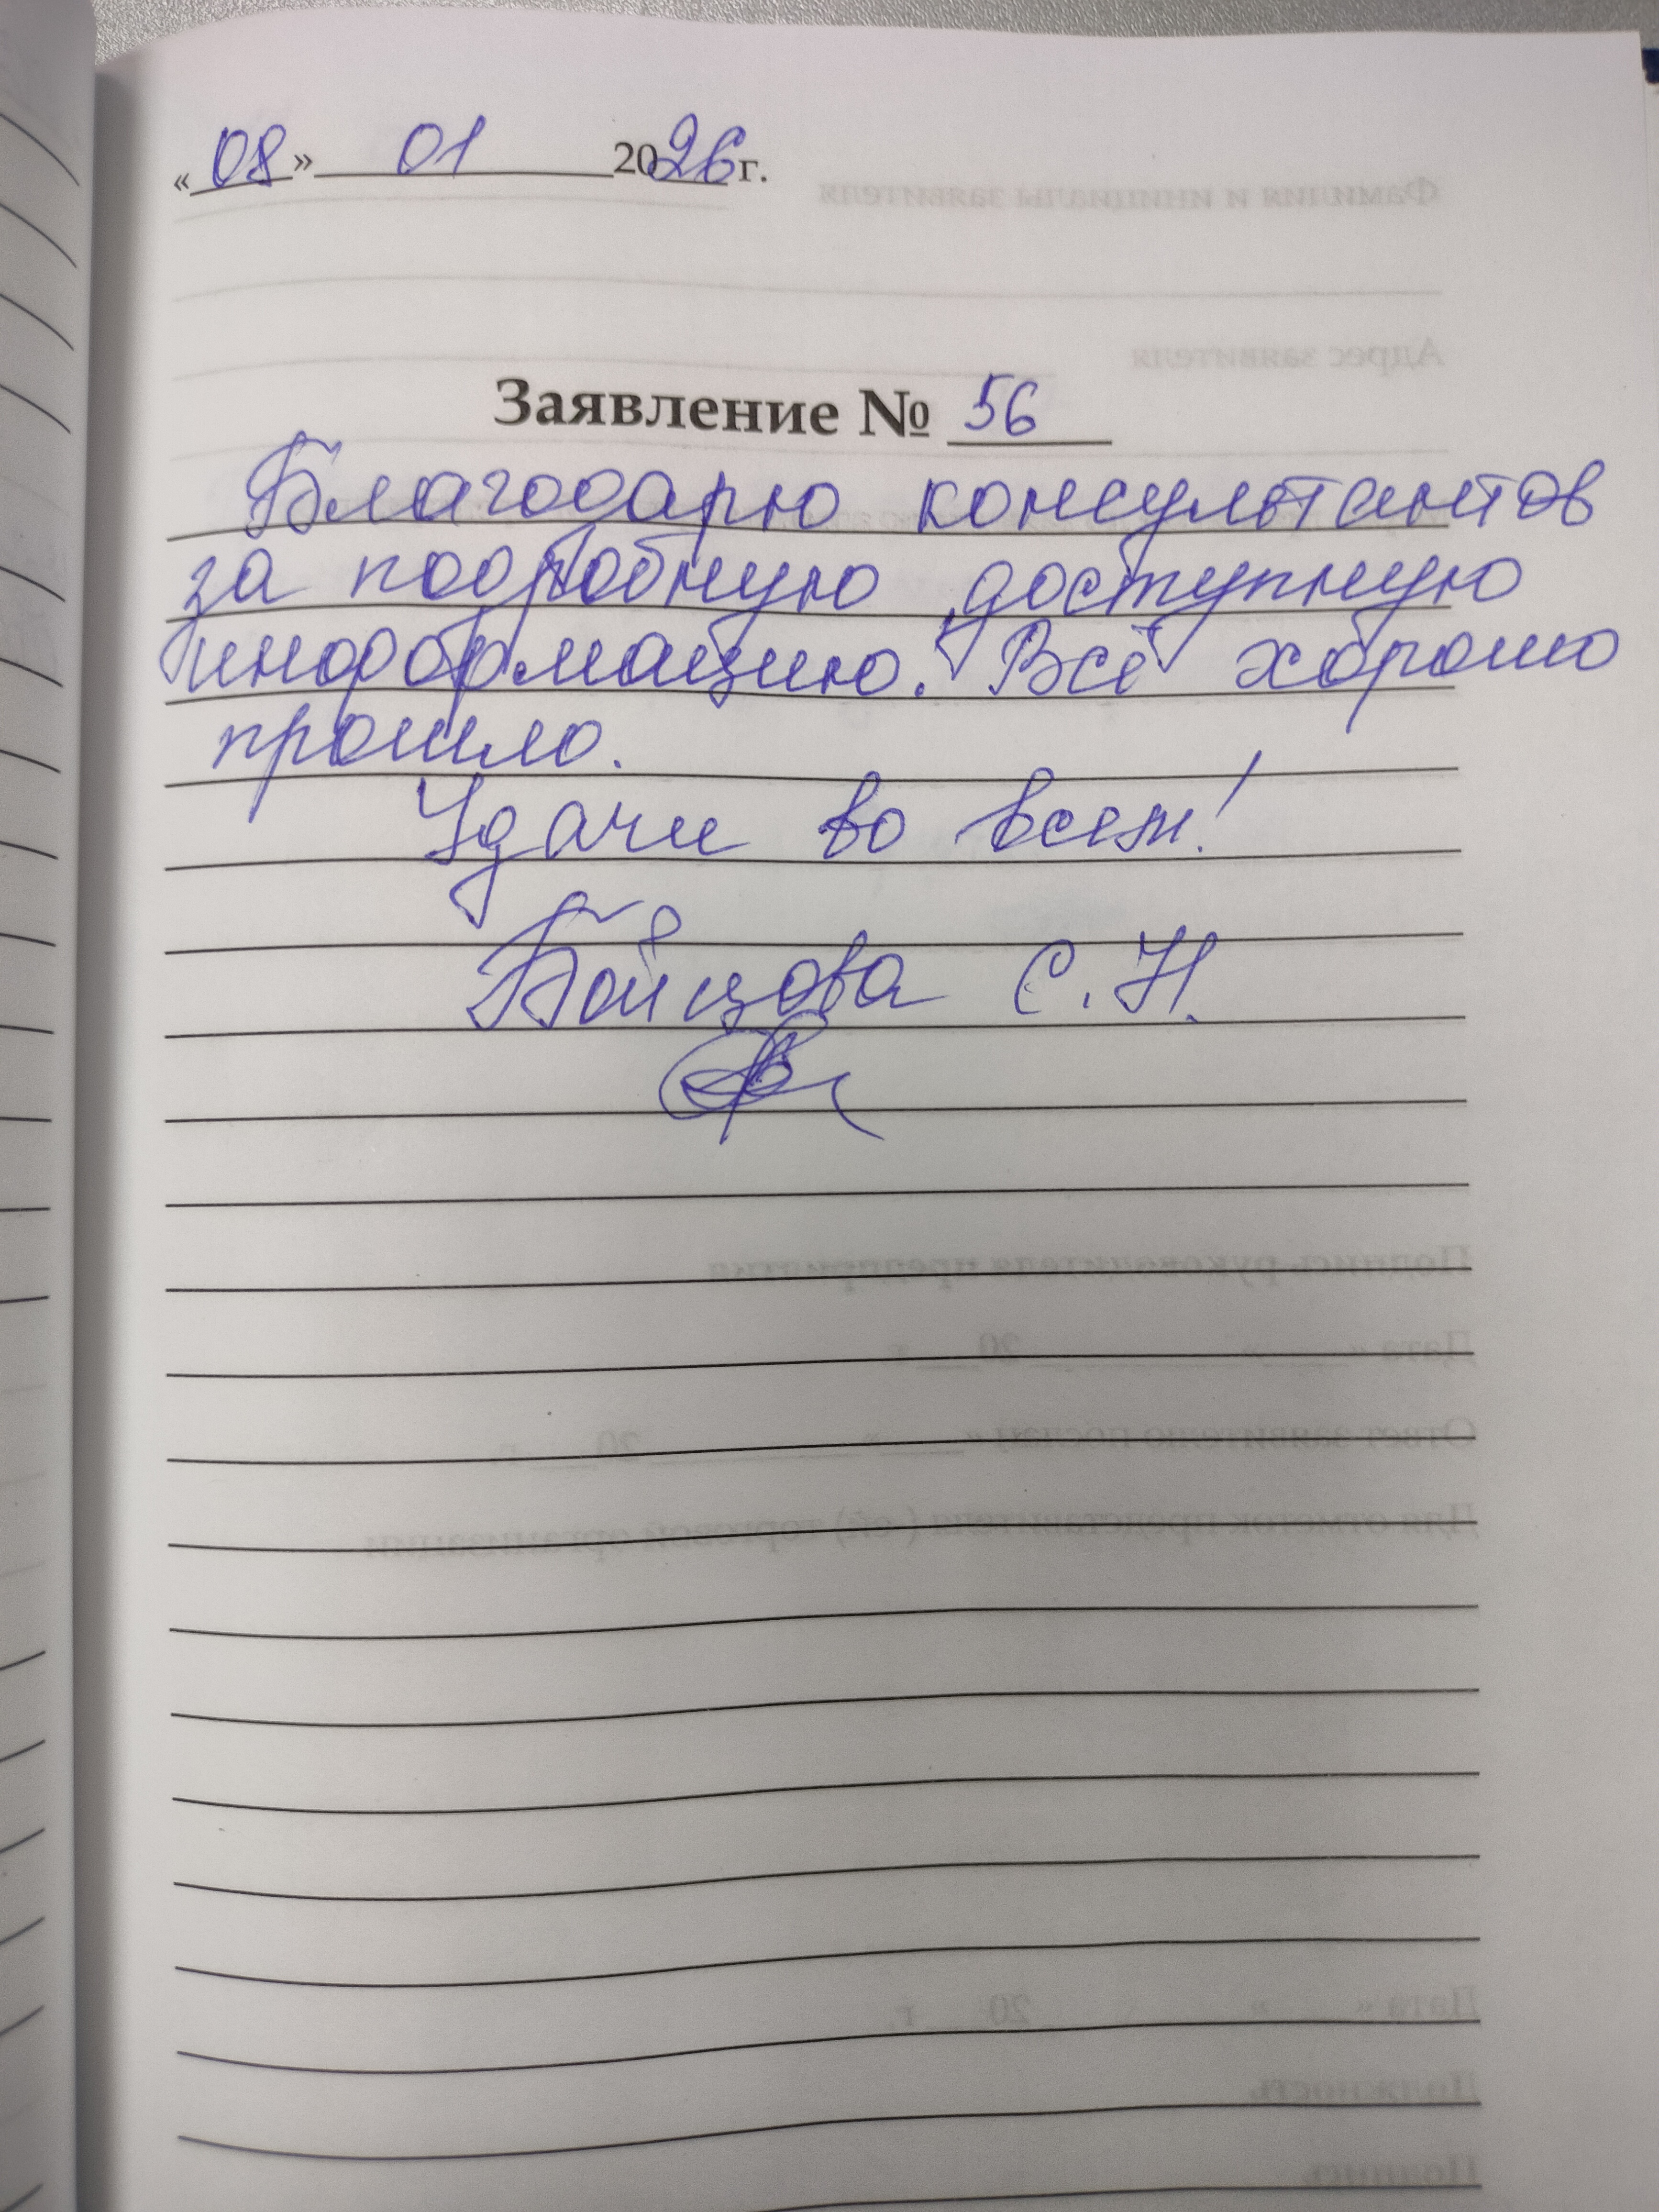 «08» 01 2026 г.
Заявление № 56
Благодарю консультантов
за подробную доступную
информацию. Всё хорошо
прошло.
Удачи во всем!
Бойцова С.Н.